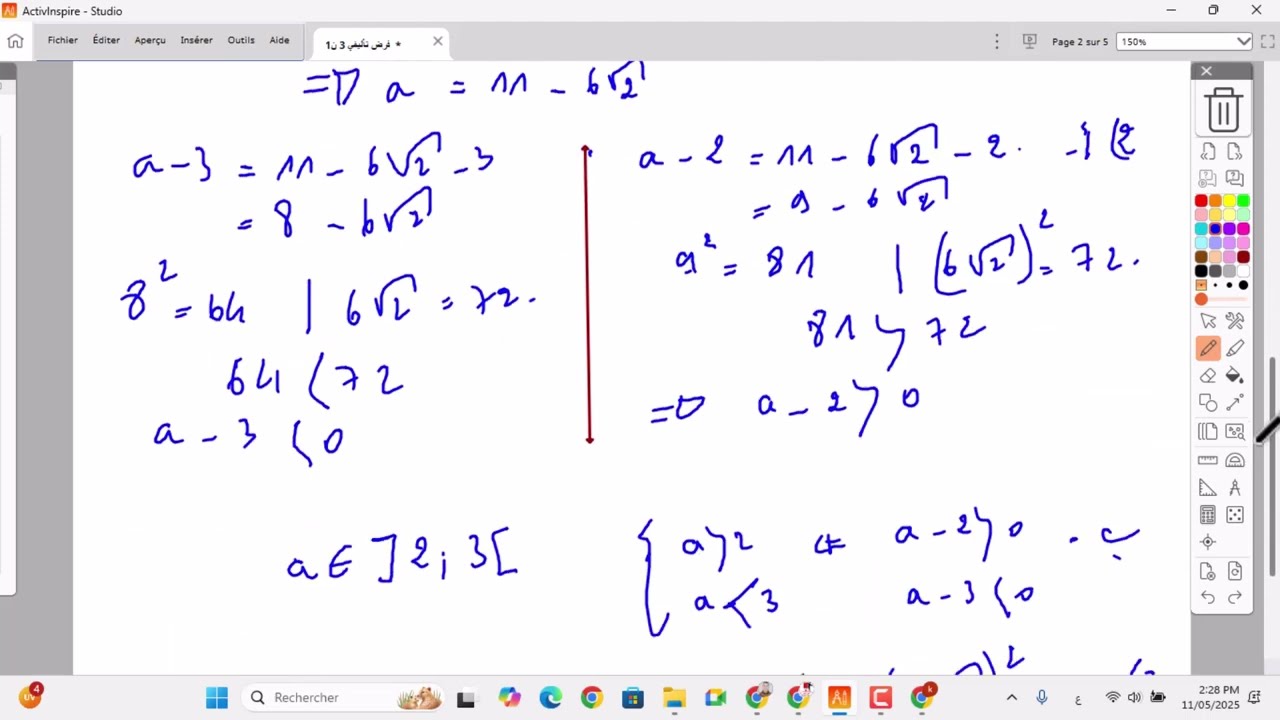 ActivInspire - Studio
Fichier Éditer Aperçu Insérer Outils Aide
فرض تأليفي 3 ن1 *
Page 2 sur 5
150%
=> a = 11 - 6√2
a - 3 = 11 - 6√2 - 3
= 8 - 6√2
8² = 64 | 6√2 = 72.
64 < 72
a - 3 < 0
a - 2 = 11 - 6√2 - 2.
= 9 - 6√2
9² = 81 | (6√2)² = 72.
81 > 72
=> a - 2 > 0
a ∈ ]2; 3[
a > 2 a - 2 > 0
a < 3 a - 3 < 0
4
Rechercher
ع
2:28 PM
11/05/2025